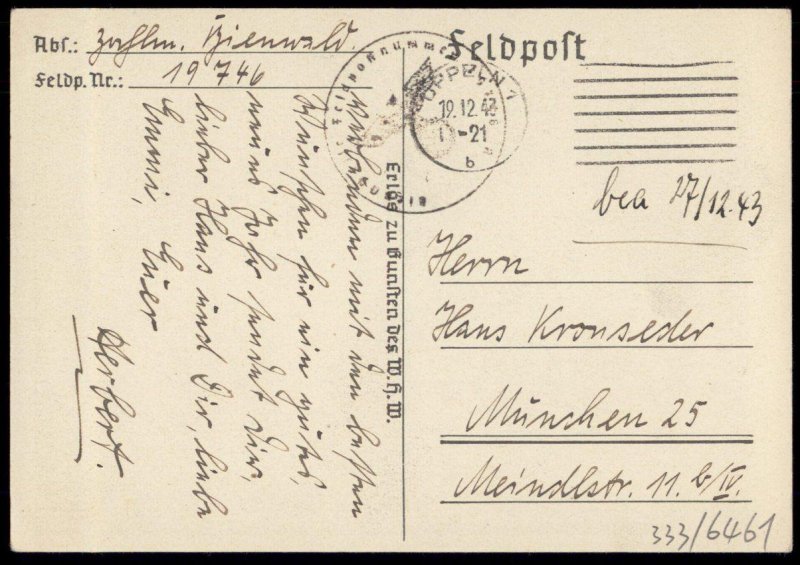 Abs.: Zahlm. Bienwald.
Feldp. Nr.: 19 746
Feldpost
OPPELN 1
19.12.43
-21
b
verbunden mit den besten
Wünschen für ein gutes,
neues Jahr sendet Dir,
lieber Hans und Dir, liebe
Emmi, Euer
Herbert.
Erlös zu Gunsten des W.H.W.
bea 27/12.43
Herrn
Hans Kronseder
München 25
Meindlstr. 11. b/IV.
333/6461